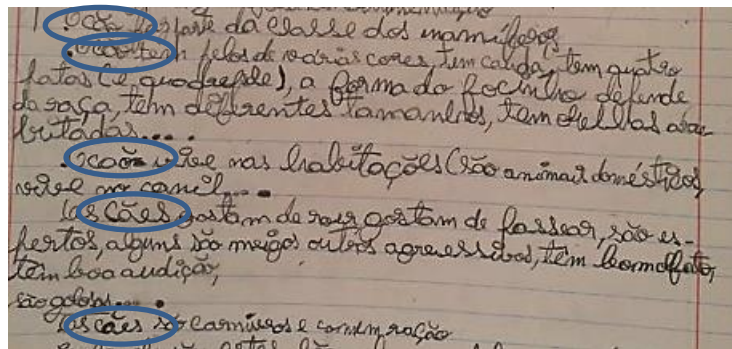 .O cão faz parte da classe dos mamíferos
.O cão tem pelos de várias cores, tem cauda, tem quatro
patas (é quadrúpede), a forma do focinho depende
da raça, têm diferentes tamanhos, tem orelhas
....
.O cão vive nas habitações (são animais domésticos,
vive no canil....
Os cães gostam de roer gostam de passear, são es-
pertos, alguns são meigos outros agressivos, têm bom olfato,
tem boa audição,
são gulosos....
Os cães são carnívoros e comem ração